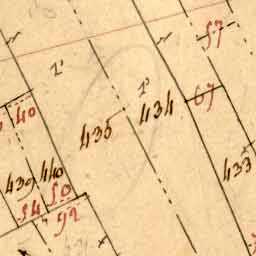 57
1'
1'
40
67
434
435
433
439
440
50
54